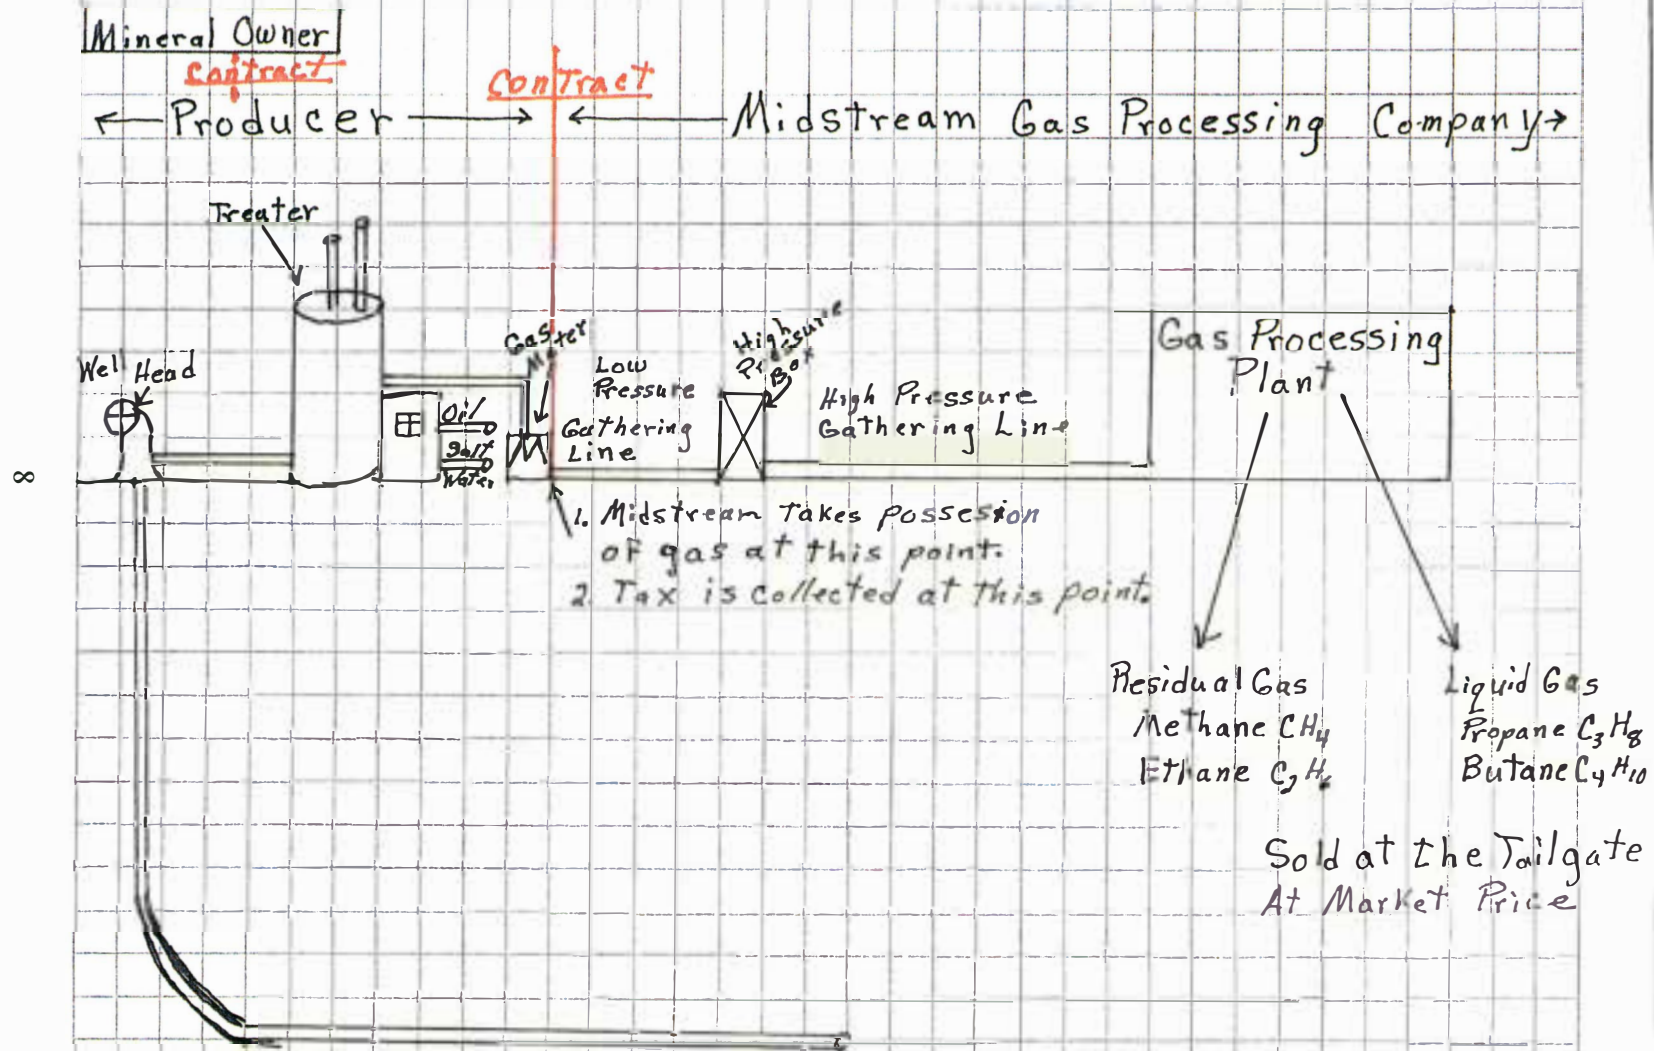 Mineral Owner
Contract
Contract
← Producer →
← Midstream Gas Processing Company →
Treater
Well Head
Gas Meter
Low
Pressure
Gathering
Line
High
Pressure
Box
High Pressure
Gathering Line
Gas Processing
Plant
Oil
Salt
Water
∞
1. Midstream Takes possesion
of gas at this point.
2. Tax is collected at this point.
Residual Gas
Methane CH4
Ethane C2H6
Liquid Gas
Propane C3H8
Butane C4H10
Sold at the Tailgate
At Market Price